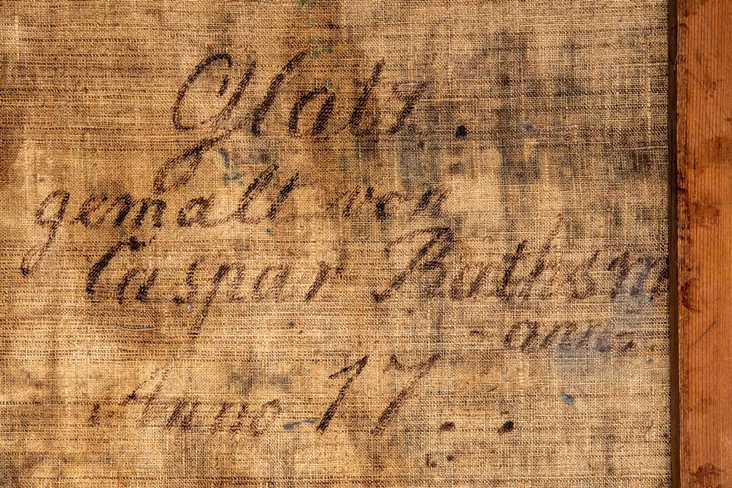 Glatz.
gemalt von
Caspar Rathsm
-ann-
Anno 17..